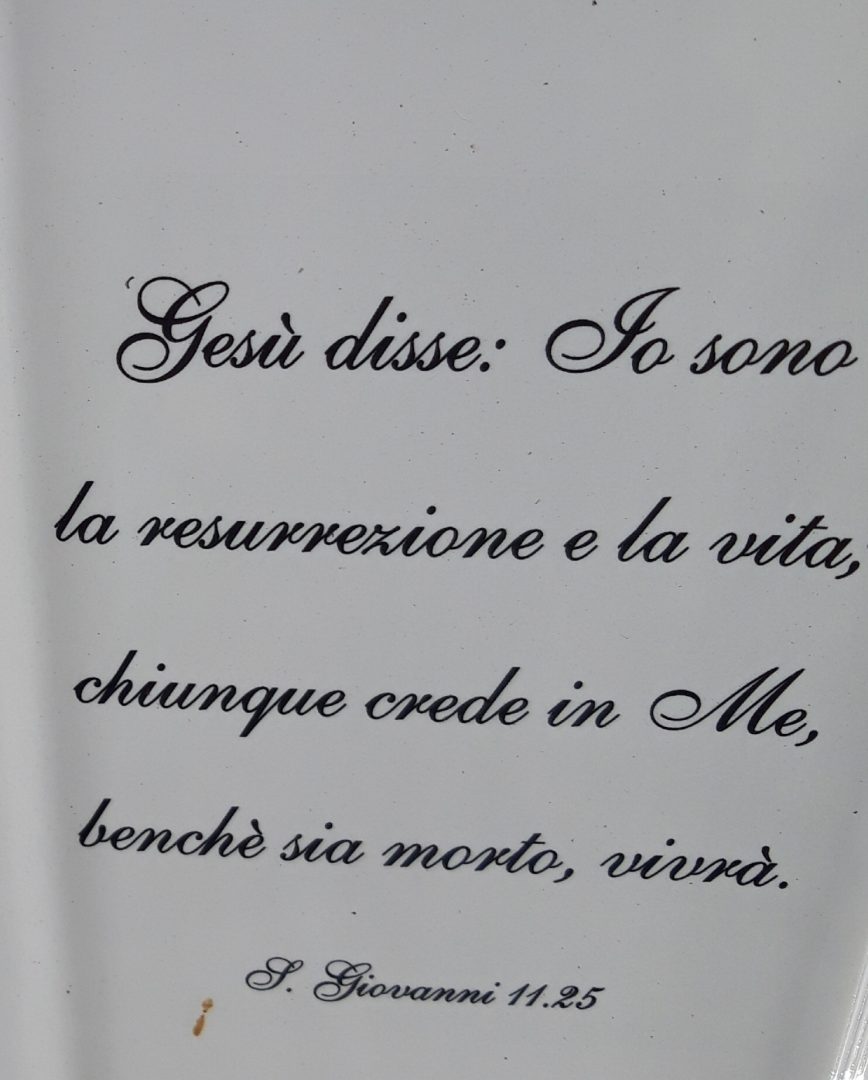 Gesù disse: Io sono
la resurrezione e la vita,
chiunque crede in Me,
benchè sia morto, vivrà.
S. Giovanni 11.25